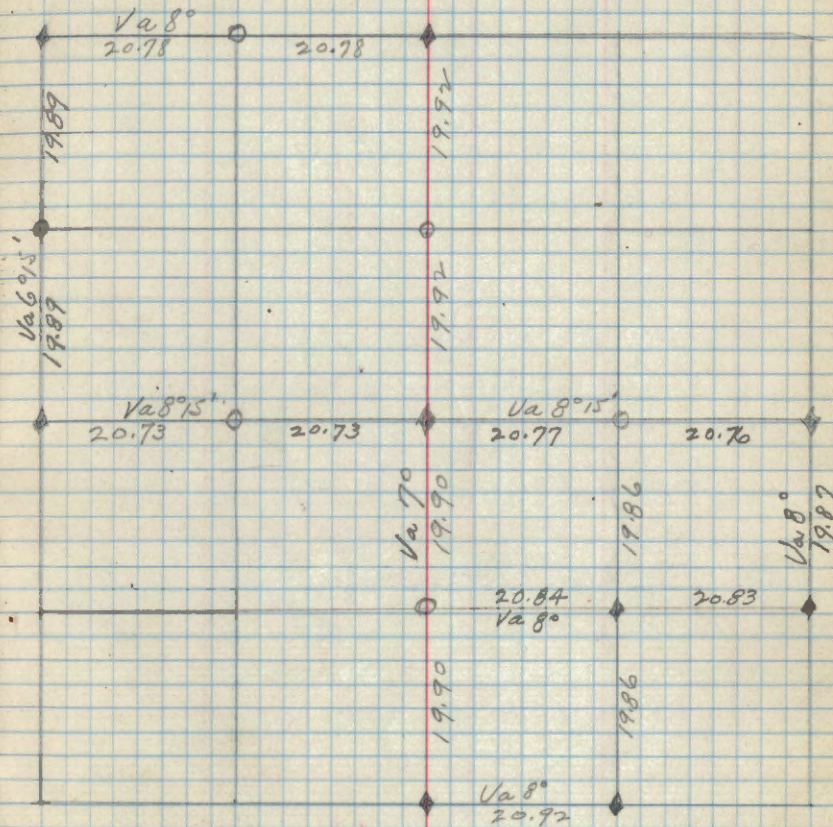 Va 8°
20.78 20.78
19.89
19.92
Va 6°15'
19.89
19.92
Va 8°15' Va 8°15'
20.73 20.73 20.77 20.76
Va 7°
19.90
19.86
Va 8°
19.87
20.84 20.83
Va 8°
19.90
19.86
Va 8°
20.92